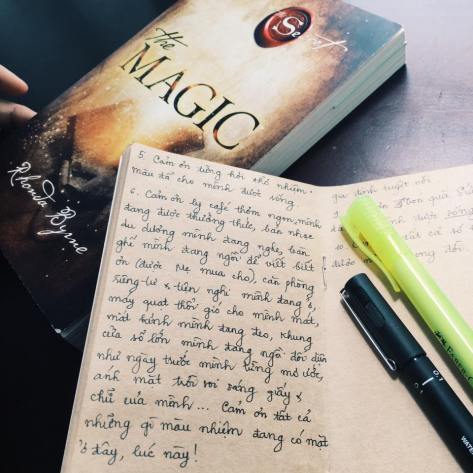 The Secret
the
MAGIC
Rhonda Byrne
5. Cảm ơn từng hơi thở nhiệm
màu đã cho mình được sống.
6. Cảm ơn ly café thơm ngon mình
đang được thưởng thức, bản nhạc
du dương mình đang nghe, bàn
ghế mình đang ngồi để viết biết
ơn (được Mẹ mua cho), căn phòng
riêng tư & tiện nghi mình đang ở,
máy quạt thổi gió cho mình mát,
mắt kính mình đang đeo, khung
cửa sổ lớn mình đang ngồi đối diện
như ngày trước mình từng mơ ước,
ánh mặt trời soi sáng giấy &
chữ của mình... Cảm ơn tất cả
những gì màu nhiệm đang có mặt
ở đây, lúc này!
gia đình tuyệt vời
0.1